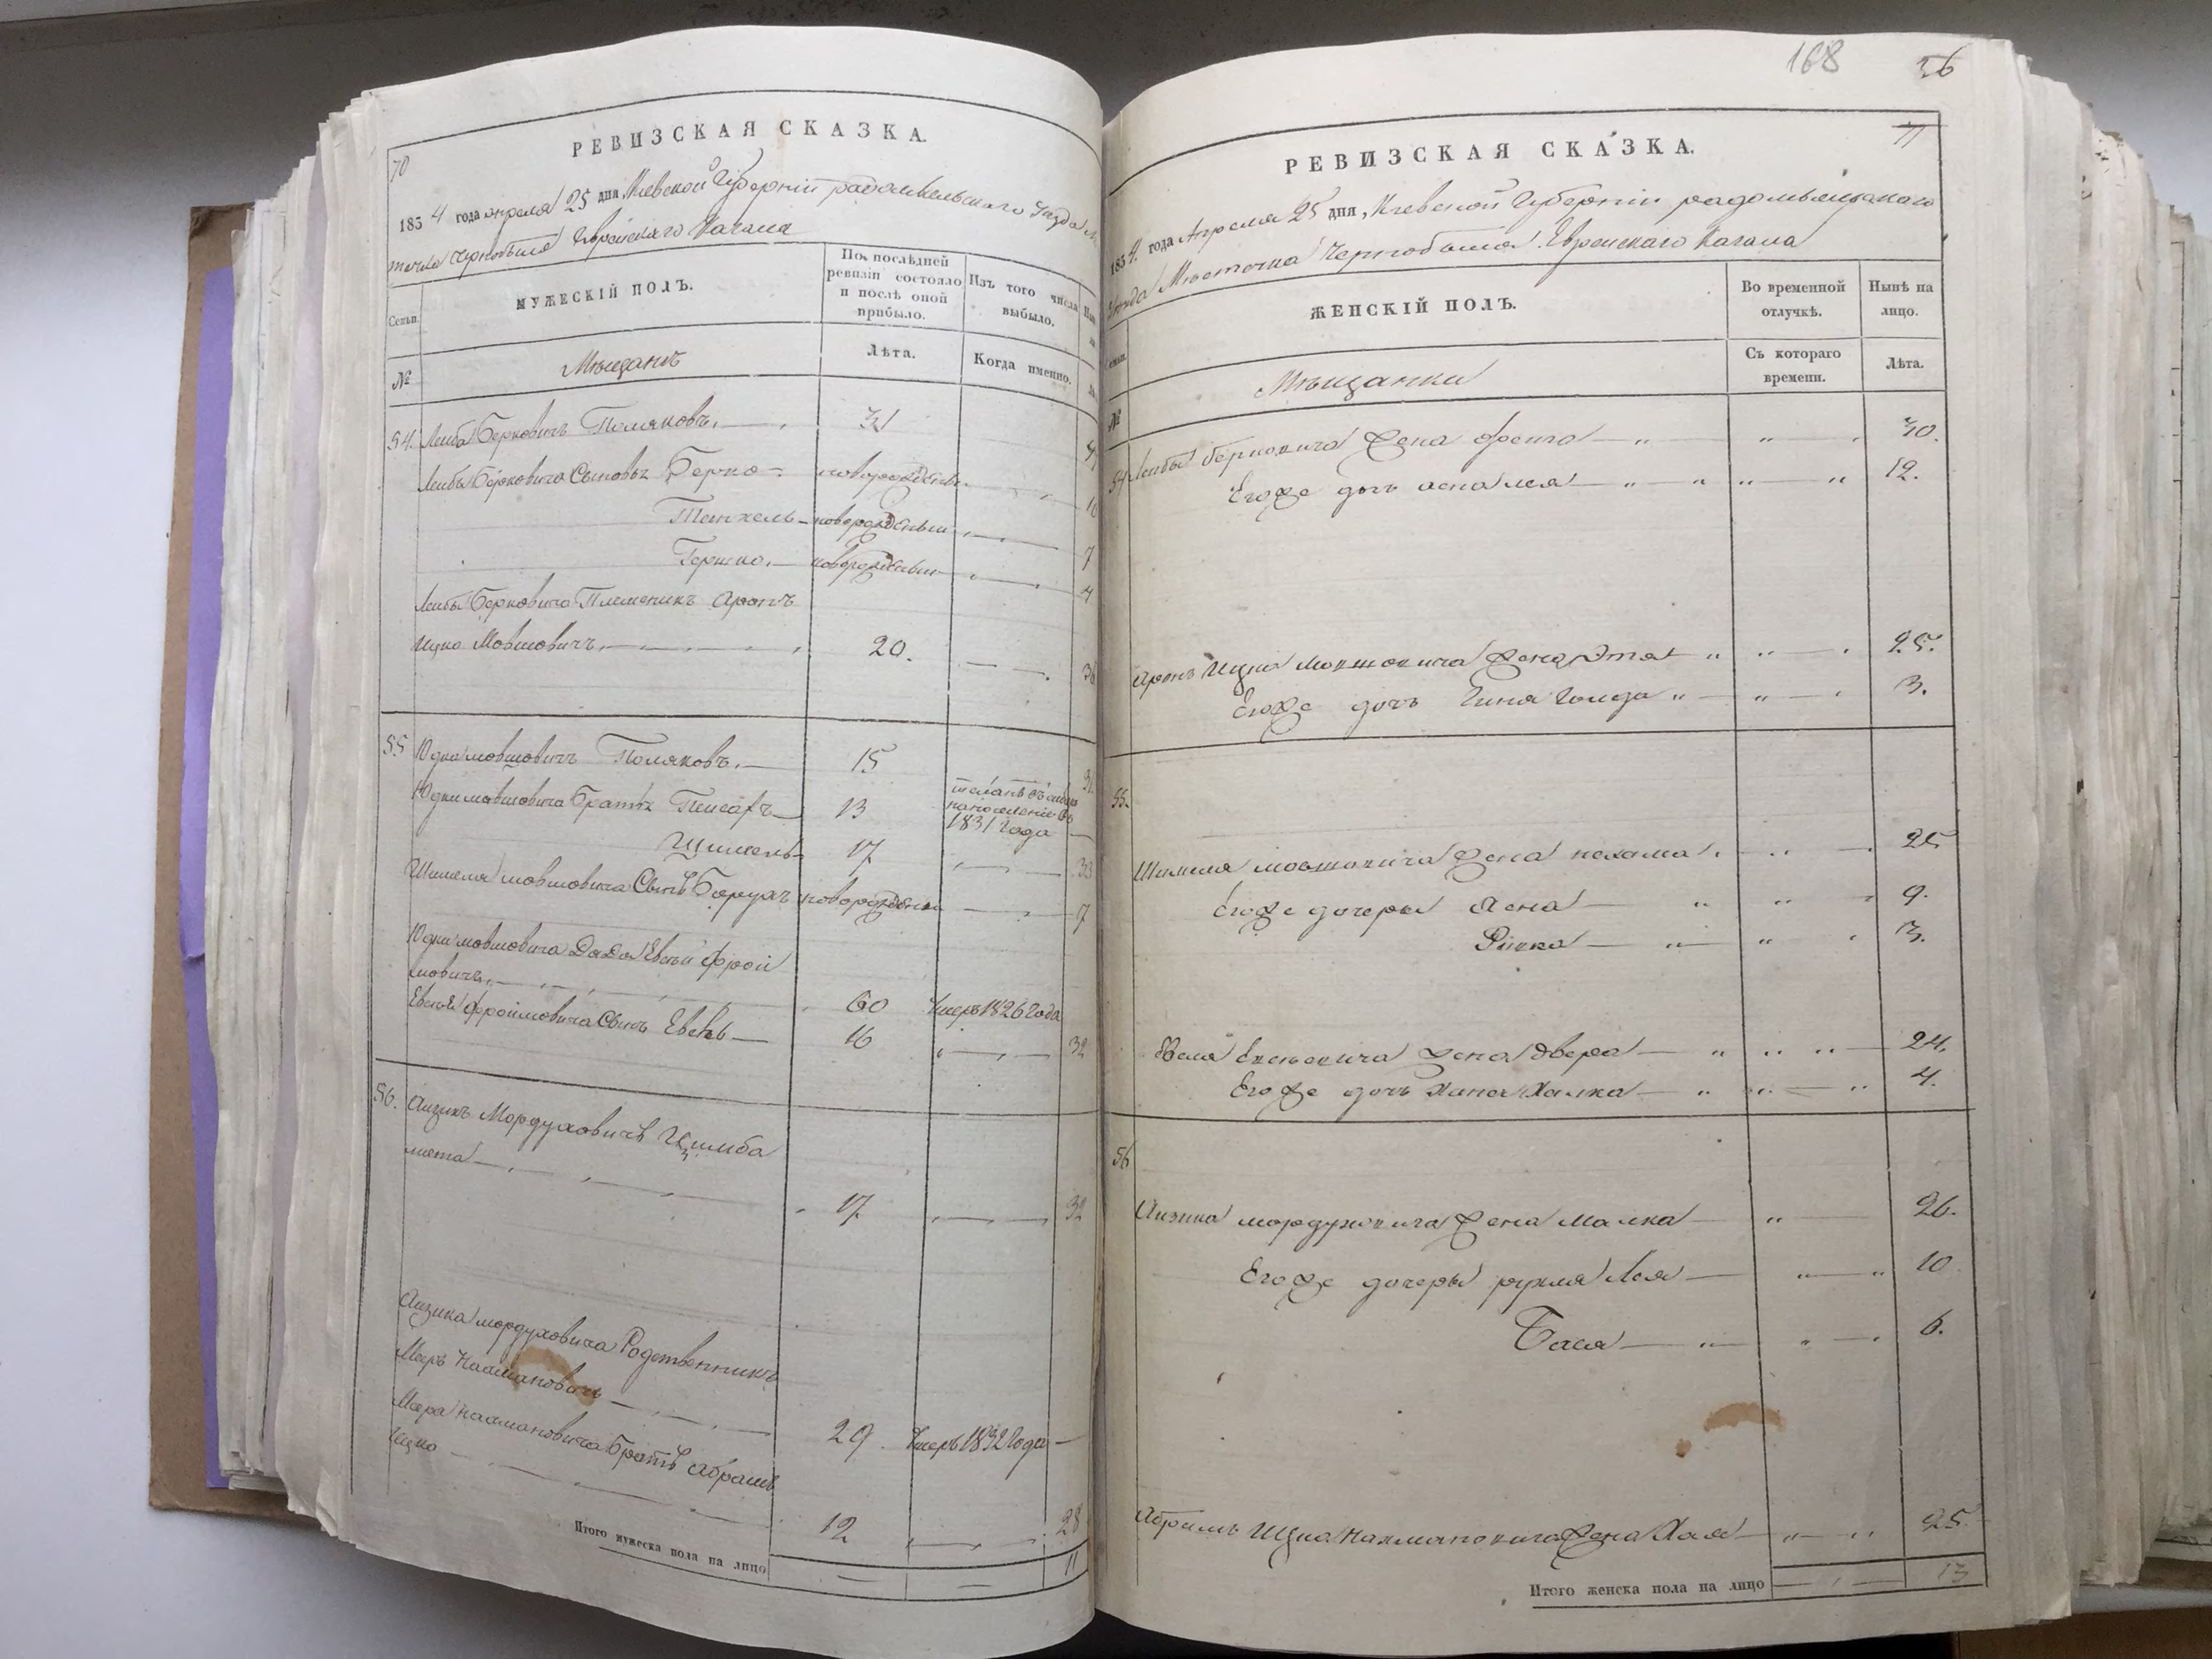 70
РЕВИЗСКАЯ СКАЗКА.
1834 года апреля 25 дня, Киевской Губернїи радомысльского Уезда
течка Чернобыля Еврейскаго Кагала
Семьи.
МУЖЕСКІЙ ПОЛЪ.
По послѣдней ревизіи состояло и послѣ оной прибыло.
Изъ того числа выбыло.
№
Мѣщанъ
Лѣта.
Когда именно.
54. Лейба Берковичъ Поляковъ. 31
Лейбы Берковича Сыновья Берко новорожденъ. 10
новорожденъ 7
Гершко. новорожденъ 4
Лейбы Берковича Племеникъ Аронъ
Ицко Мовшовичъ, 20. 36
55 Юдка мовшовичъ Поляковъ. 15 31
Юдки мовшовича братъ 13
1831 Года
Шимель 17 33
Шимеля мовшовича Сынъ Борухъ новорожденъ 7
Юдки мовшовича Дядя Евсей Фрои
мовичъ 60 Умеръ 1826 Года
Евсея Фроимовича Сынъ 16 32
56. Аизикъ Мордуховичъ Цимба
листа 17 32
Аизика мордуховича Родственникъ
Меер Нахмановичъ 29 Умеръ 1832 Года
Меера Нахмановича братъ Абрамъ
Ицко 12 28
Итого мужеска пола на лицо 11
168 56
71
РЕВИЗСКАЯ СКАЗКА.
1834 года Апреля 25 дня, Киевской Губернїи радомысльскаго
Уезда Мѣстечка Чернобыля Еврейскаго Кагала
ЖЕНСКІЙ ПОЛЪ.
Во временной отлучкѣ.
Нынѣ на лицо.
№
Мѣщанки
Съ котораго времени.
Лѣта.
54 Лейбы берковича жена фрейга 30.
Егоже дочь хена лея 12.
Аронъ Ицка Мовшовича жена Этя 25.
Егоже дочь Гиня Голда 3.
55.
Шимеля мовшовича жена нехама. 25
Егоже дочеры Хена 9.
Ривка 3.
Евсеевича жена двера 24.
Егоже дочь Хана Халка 4.
56
Аизика мордуховича жена Малка 26.
Егоже дочеры рухля Лея 10
Бася 6.
Абрамъ Ицка Нахмановича жена Хая 25.
Итого женска пола на лицо 13